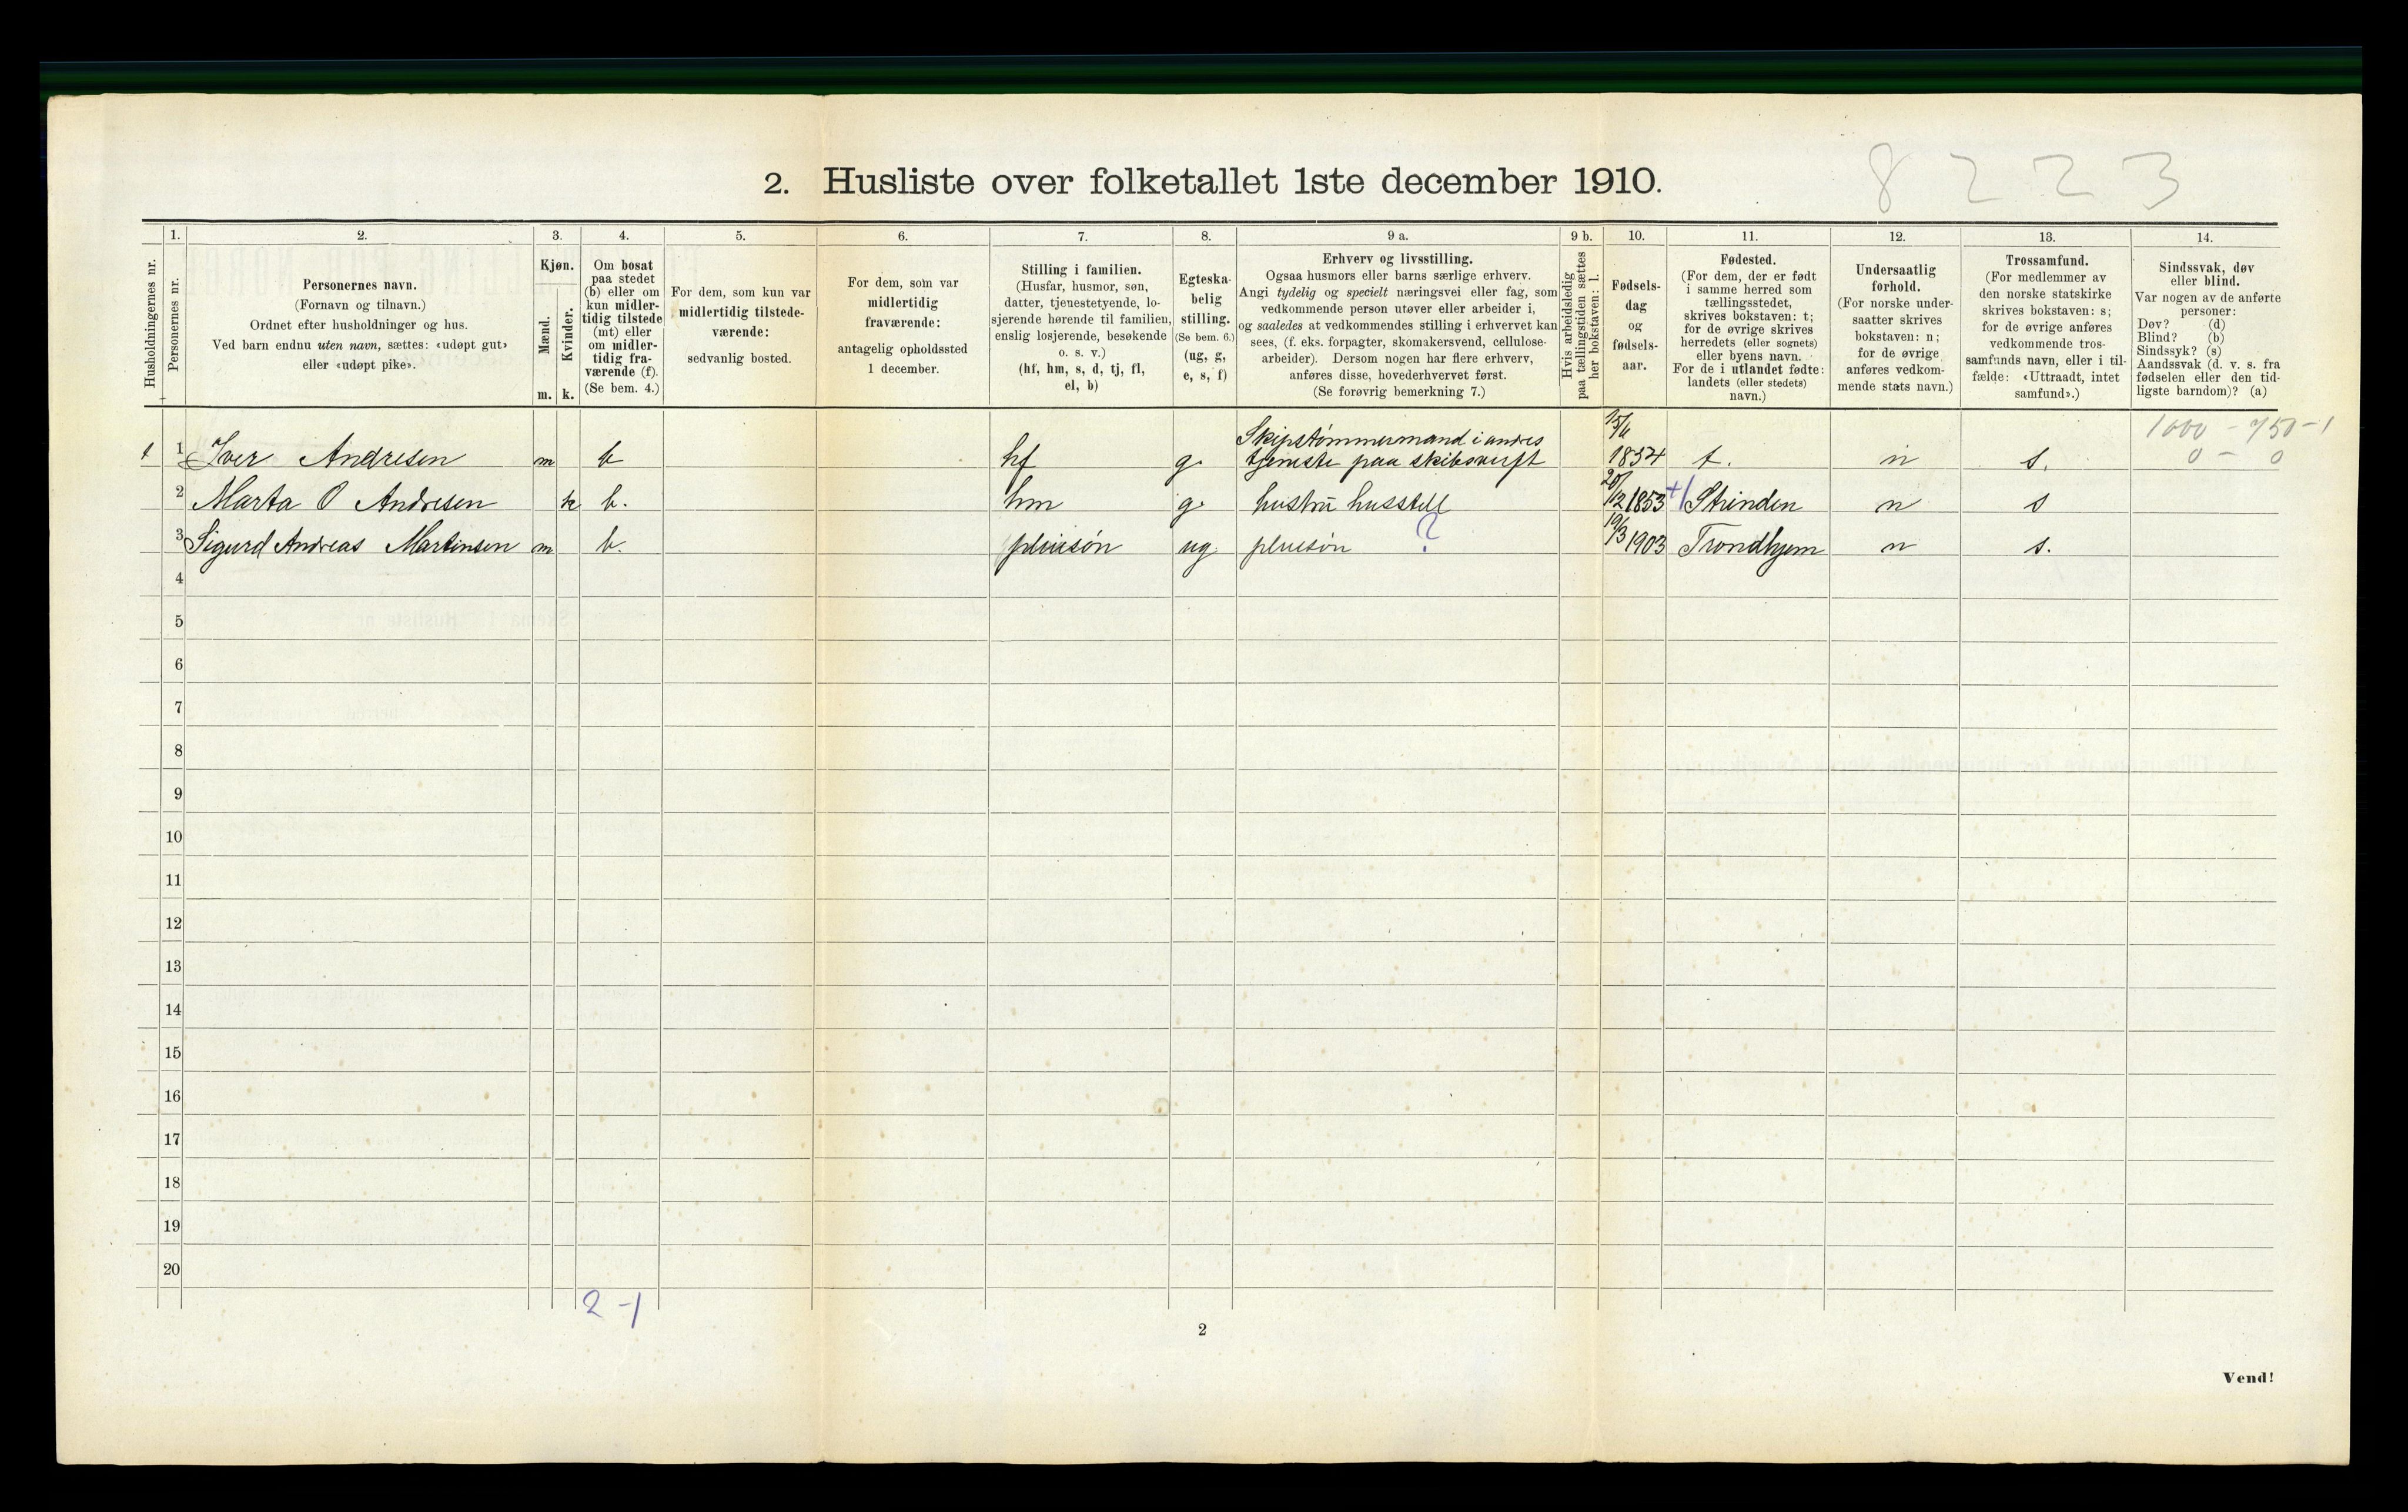 8 2 2 3
2. Husliste over folketallet 1ste december 1910.
Husholdningernes nr.
1.
Personernes nr.
2.
Personernes navn.
(Fornavn og tilnavn.)
Ordnet efter husholdninger og hus.
Ved barn endnu uten navn, sættes: «udøpt gut»
eller «udøpt pike».
3.
Kjøn.
Mænd.
Kvinder.
m. k.
4.
Om bosat
paa stedet
(b) eller om
kun midler-
tidig tilstede
(mt) eller
om midler-
tidig fra-
værende (f).
(Se bem. 4.)
5.
For dem, som kun var
midlertidig tilstede-
værende:
sedvanlig bosted.
6.
For dem, som var
midlertidig
fraværende:
antagelig opholdssted
1 december.
7.
Stilling i familien.
(Husfar, husmor, søn,
datter, tjenestetyende, lo-
sjerende hørende til familien,
enslig losjerende, besøkende
o. s. v.)
(hf, hm, s, d, tj, fl,
el, b)
8.
Egteska-
belig
stilling.
(Se bem. 6.)
(ug, g,
e, s, f)
9 a.
Erhverv og livsstilling.
Ogsaa husmors eller barns særlige erhverv.
Angi tydelig og specielt næringsvei eller fag, som
vedkommende person utøver eller arbeider i,
og saaledes at vedkommendes stilling i erhvervet kan
sees, (f. eks. forpagter, skomakersvend, cellulose-
arbeider). Dersom nogen har flere erhverv,
anføres disse, hovederhvervet først.
(Se forøvrig bemerkning 7.)
9 b.
Hvis arbeidsledig
paa tællingstiden sættes
her bokstaven: l.
10.
Fødsels-
dag
og
fødsels-
aar.
11.
Fødested.
(For dem, der er født
i samme herred som
tællingsstedet,
skrives bokstaven: t;
for de øvrige skrives
herredets (eller sognets)
eller byens navn.
For de i utlandet fødte:
landets (eller stedets)
navn.)
12.
Undersaatlig
forhold.
(For norske under-
saatter skrives
bokstaven: n;
for de øvrige
anføres vedkom-
mende stats navn.)
13.
Trossamfund.
(For medlemmer av
den norske statskirke
skrives bokstaven: s;
for de øvrige anføres
vedkommende tros-
samfunds navn, eller i til-
fælde: «Uttraadt, intet
samfund».)
14.
Sindssvak, døv
eller blind.
Var nogen av de anførte
personer:
Døv? (d)
Blind? (b)
Sindssyk? (s)
Aandssvak (d. v. s. fra
fødselen eller den tid-
ligste barndom)? (a)
1000 - 750 - 1
0 - 0
Skipstømmermand i andres
1 1 Iver Andresen m b hf g. tjeneste paa skibsverft 15/6 1854 t. n s.
2 Marta O Andresen k b. hm g. hustru husstell 20/12 1853 Strinden n s
3 Sigurd Andreas Martinsen m b. pleiesøn ug. pleiesøn ? 19/3 1903 Trondhjem n s.
4
5
6
7
8
9
10
11
12
13
14
15
16
17
18
19
20
2 - 1
2
Vend!